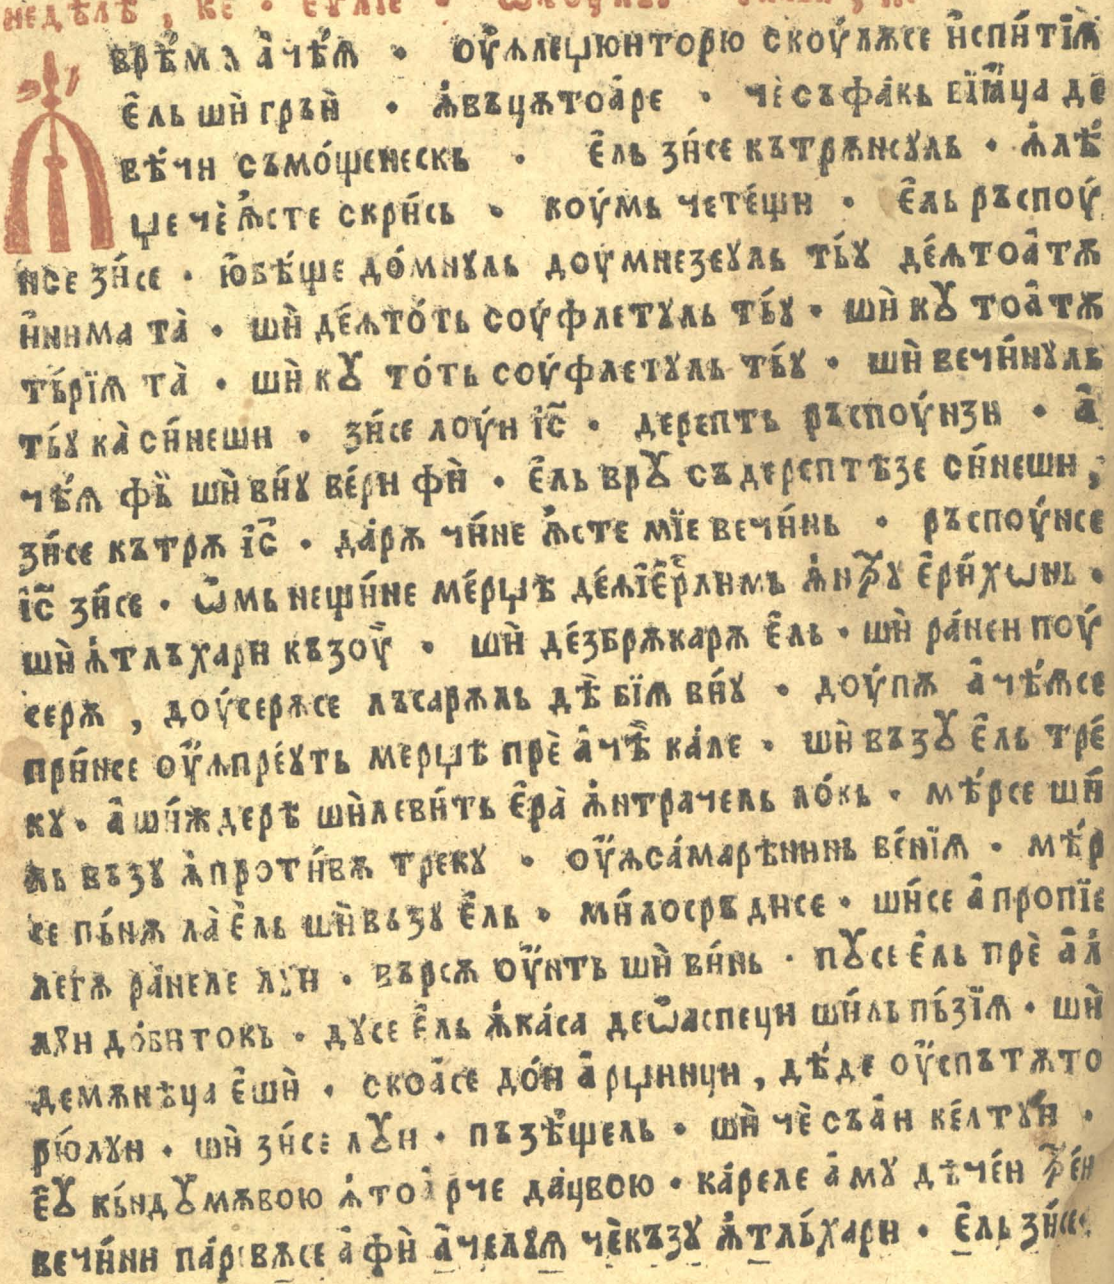 недѣлѣ, ке · еѵлїе ·
врѣ́мѧ а҆чѣ́ѧ · оу҆́ѧлеџюиторю скоу́лѫсе и҆спи́тїѫ
є҆ль шѝ гръѝ · ꙟ҆въцѫтоа́ре · чѐ съ фа́кь вїꙗ҆́ца де
вѣ́чи съмо́щенескь · є҆ль зи́се кътрѫнсꙋль · ꙟ҆лѣ́
џе чѐ ꙗ҆́сте скри́сь · коу́мь чете́щи · є҆́ль ръспоу́
нсе зи́се · ю҆бѣ́ще до́мнꙋль доумнезеꙋль тъ́ꙋ де́ѫтоа́тѫ
и҆́нима та̀ · шѝ де́ѫто́ть соу́флетꙋль тъ́ꙋ · шѝ кꙋ тоа́тѫ
тъ́рїѫ та̀ · шѝ кꙋ то́ть соу́флетꙋль тъ́ꙋ · шѝ вечи́нꙋль
тъ́ꙋ ка̀ си́неши · зи́се лоу́и і҆с҃ · дерептъ ръспоу́нзи · а҆
чѣ́ѧ фъ̀ шѝ ви́ꙋ ве́ри фѝ · є҆́ль врꙋ съ дерептѣзе си́неши,
зи́се кътрѫ і҆с҃ · да́рѫ чи́не ꙗ҆́сте мїе вечи́нь · ръспоу́нсе
і҆с҃ зи́се · ѡ҆́мь нещи́не ме́рџѣ де́ѧі҆є҆рⷭ҇лимъ ꙟ҆нтрꙋ є҆ри́хѡнь ·
шѝ ꙟ҆тлъхари къзоу̀ · шѝ де́збрѫкарѫ є҆ль · шѝ ра́неи поу́
серѫ, доу́серѫсе лъсарѫль дѣ̀ бїѫ ви́ꙋ · доу́пѫ а҆чѣ́ѧсе
при́нсе оу҆́ѧпре́ꙋть мерџѣ прѐ а҆чѣ̀ ка́ле · шѝ възꙋ є҆ль тре́
кꙋ · а҆ши́ждерѣ шѝлеви́ть є҆ра̀ ꙟ҆нтрачель ло́кь · мѣ́рсе шѝ
ль възꙋ ꙟ҆проти́вѫ трекꙋ · оу҆́ѧса́марѣнинь ве́нїѫ · мѣ́р
се пъ́нѫ ла̀ є҆ль шѝ възꙋ є҆́ль · ми́лосръдисе · ши́се а҆пропїе
легѫ ра́неле лꙋи · върсѫ оу҆нть шѝ ви́нь · пꙋсе є҆ль прѐ а҆л
лꙋи до́битокъ · дꙋсе є҆́ль ꙟ҆ка́са деѡ҆аспеци ши́ль пъ́зїѫ · шѝ
демѫнѣца є҆шѝ · скоа҆́се до́и а҆рџинци, дѣ́де оу҆спътѫто
рю́лꙋи · шѝ зи́се лꙋи · пъзѣ́щель · шѝ чѐ съа҆и ке́лтꙋи ·
є҆ꙋ къ́ндꙋмѫвою ꙟ҆тоа҆рче дацвою · ка́реле а҆мꙋ дѣче́и трéи
вечи́ни па́ривѫсе а҆фѝ а҆челꙋѧ чѐкъзꙋ ꙟ҆тлъ́хари · є҆́ль зи́се